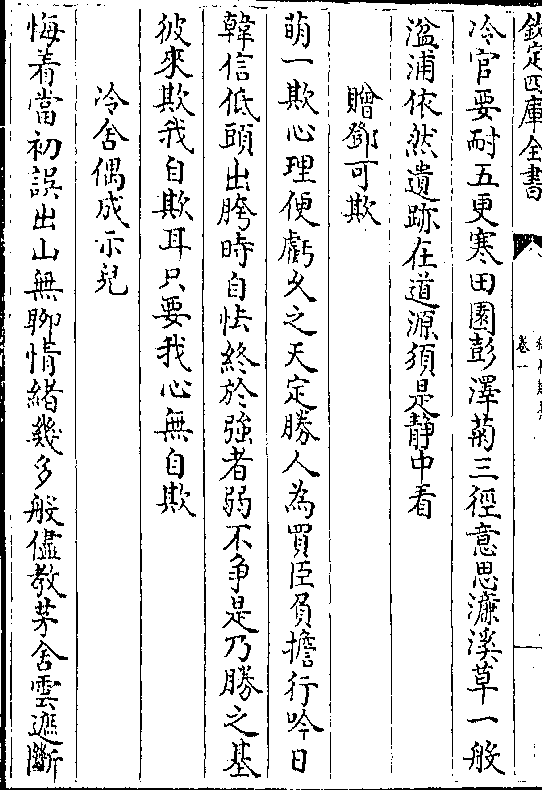 欽定四庫全書
卷一
冷官要耐五更寒田園彭澤菊三徑意思濂溪草一般
湓浦依然遺跡在道源須是靜中看
贈鄧可欺
萌一欺心理便虧久之天定勝人為買臣負擔行吟日
韓信低頭出胯時自怯終於強者弱不爭是乃勝之基
彼來欺我自欺耳只要我心無自欺
冷舍偶成示兒
悔着當初誤出山無聊情緒幾多般儘教茅舍雲遮斷